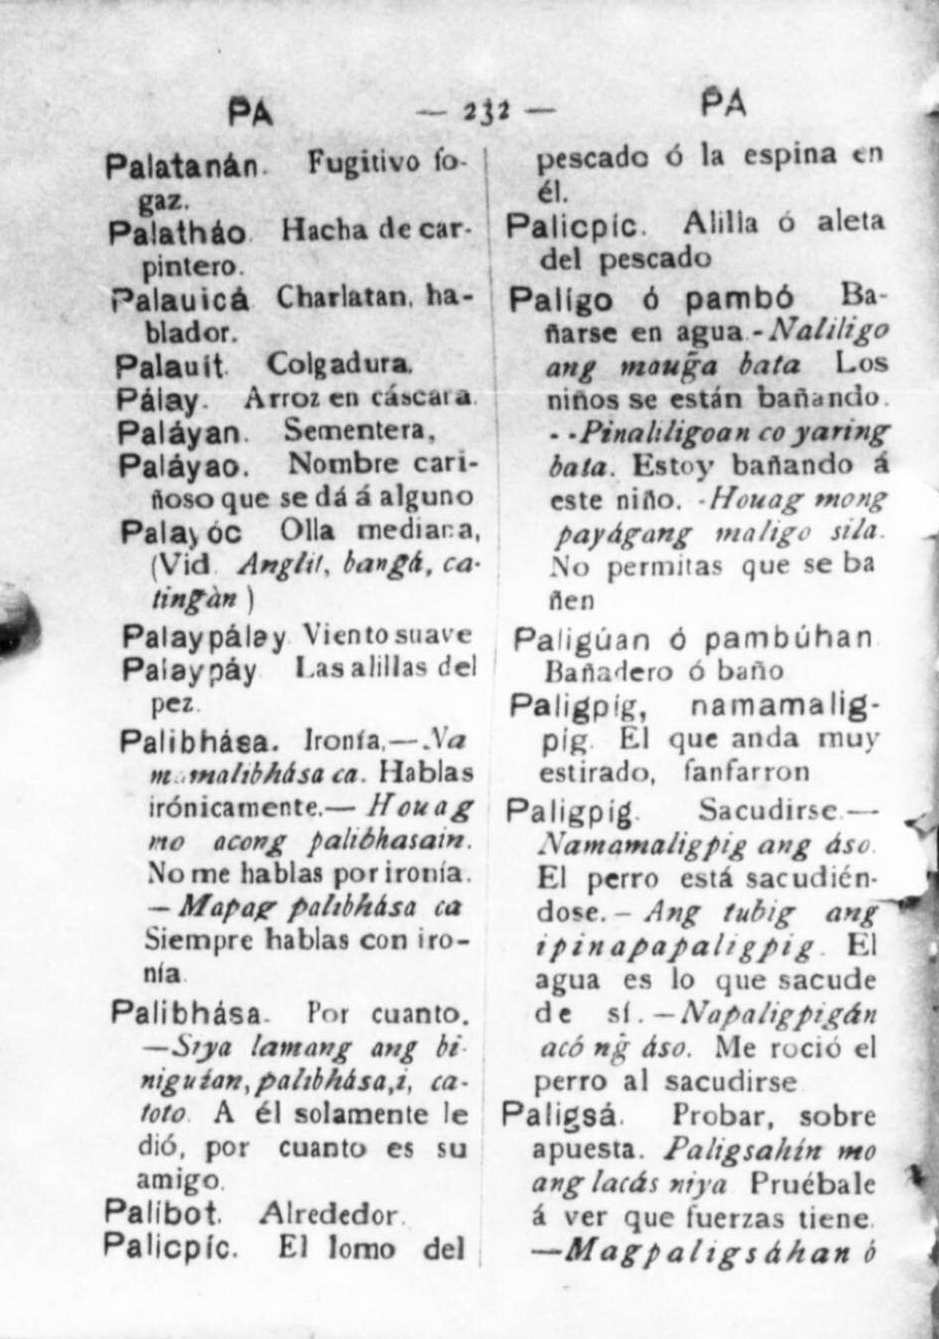 PA — 232 — PA
Palatanán. Fugitivo fo-
gaz.
Palatháo. Hacha de car-
pintero.
Palauicá Charlatan, ha-
blador.
Palauit. Colgadura.
Pálay. Arroz en cáscara.
Paláyan. Sementera,
Paláyao. Nombre cari-
ñoso que se dá á alguno
Palayóc Olla mediana,
(Vid. Anglit, bangá, ca-
tingàn)
Palaypálay Viento suave
Palaypáy Las alillas del
pez.
Palibhása. Ironía.—Na
mamalibhása ca. Hablas
irónicamente.— Houag
mo acong palibhasain.
No me hablas por ironía.
— Mapag palibhása ca
Siempre hablas con iro-
nía.
Palibhása. Por cuanto.
—Siya lamang ang bi-
niguian, palibhása,i, ca-
toto. A él solamente le
dió, por cuanto es su
amigo.
Palibot. Alrededor.
Palicpíc. El lomo del
pescado ó la espina en
él.
Palicpic. Alilla ó aleta
del pescado
Palígo ó pambó Ba-
ñarse en agua.-Naliligo
ang moug̃a bata Los
niños se están bañando.
--Pinaliligoan co yaring
bata. Estoy bañando á
este niño. -Houag mong
payágang maligo sila.
No permitas que se ba
ñen
Paligúan ó pambúhan
Bañadero ó baño
Paligpíg, namamalig-
píg. El que anda muy
estirado, fanfarron
Paligpíg. Sacudirse.—
Namamaligpig ang áso.
El perro está sacudién-
dose.— Ang tubig ang
ipinapapaligpig. El
agua es lo que sacude
de sí.—Napaligpigán
acó ng̃ áso. Me roció el
perro al sacudirse
Paligsá. Probar, sobre
apuesta. Paligsahín mo
ang lacás niya Pruébale
á ver que fuerzas tiene.
—Magpaligsáhan ó